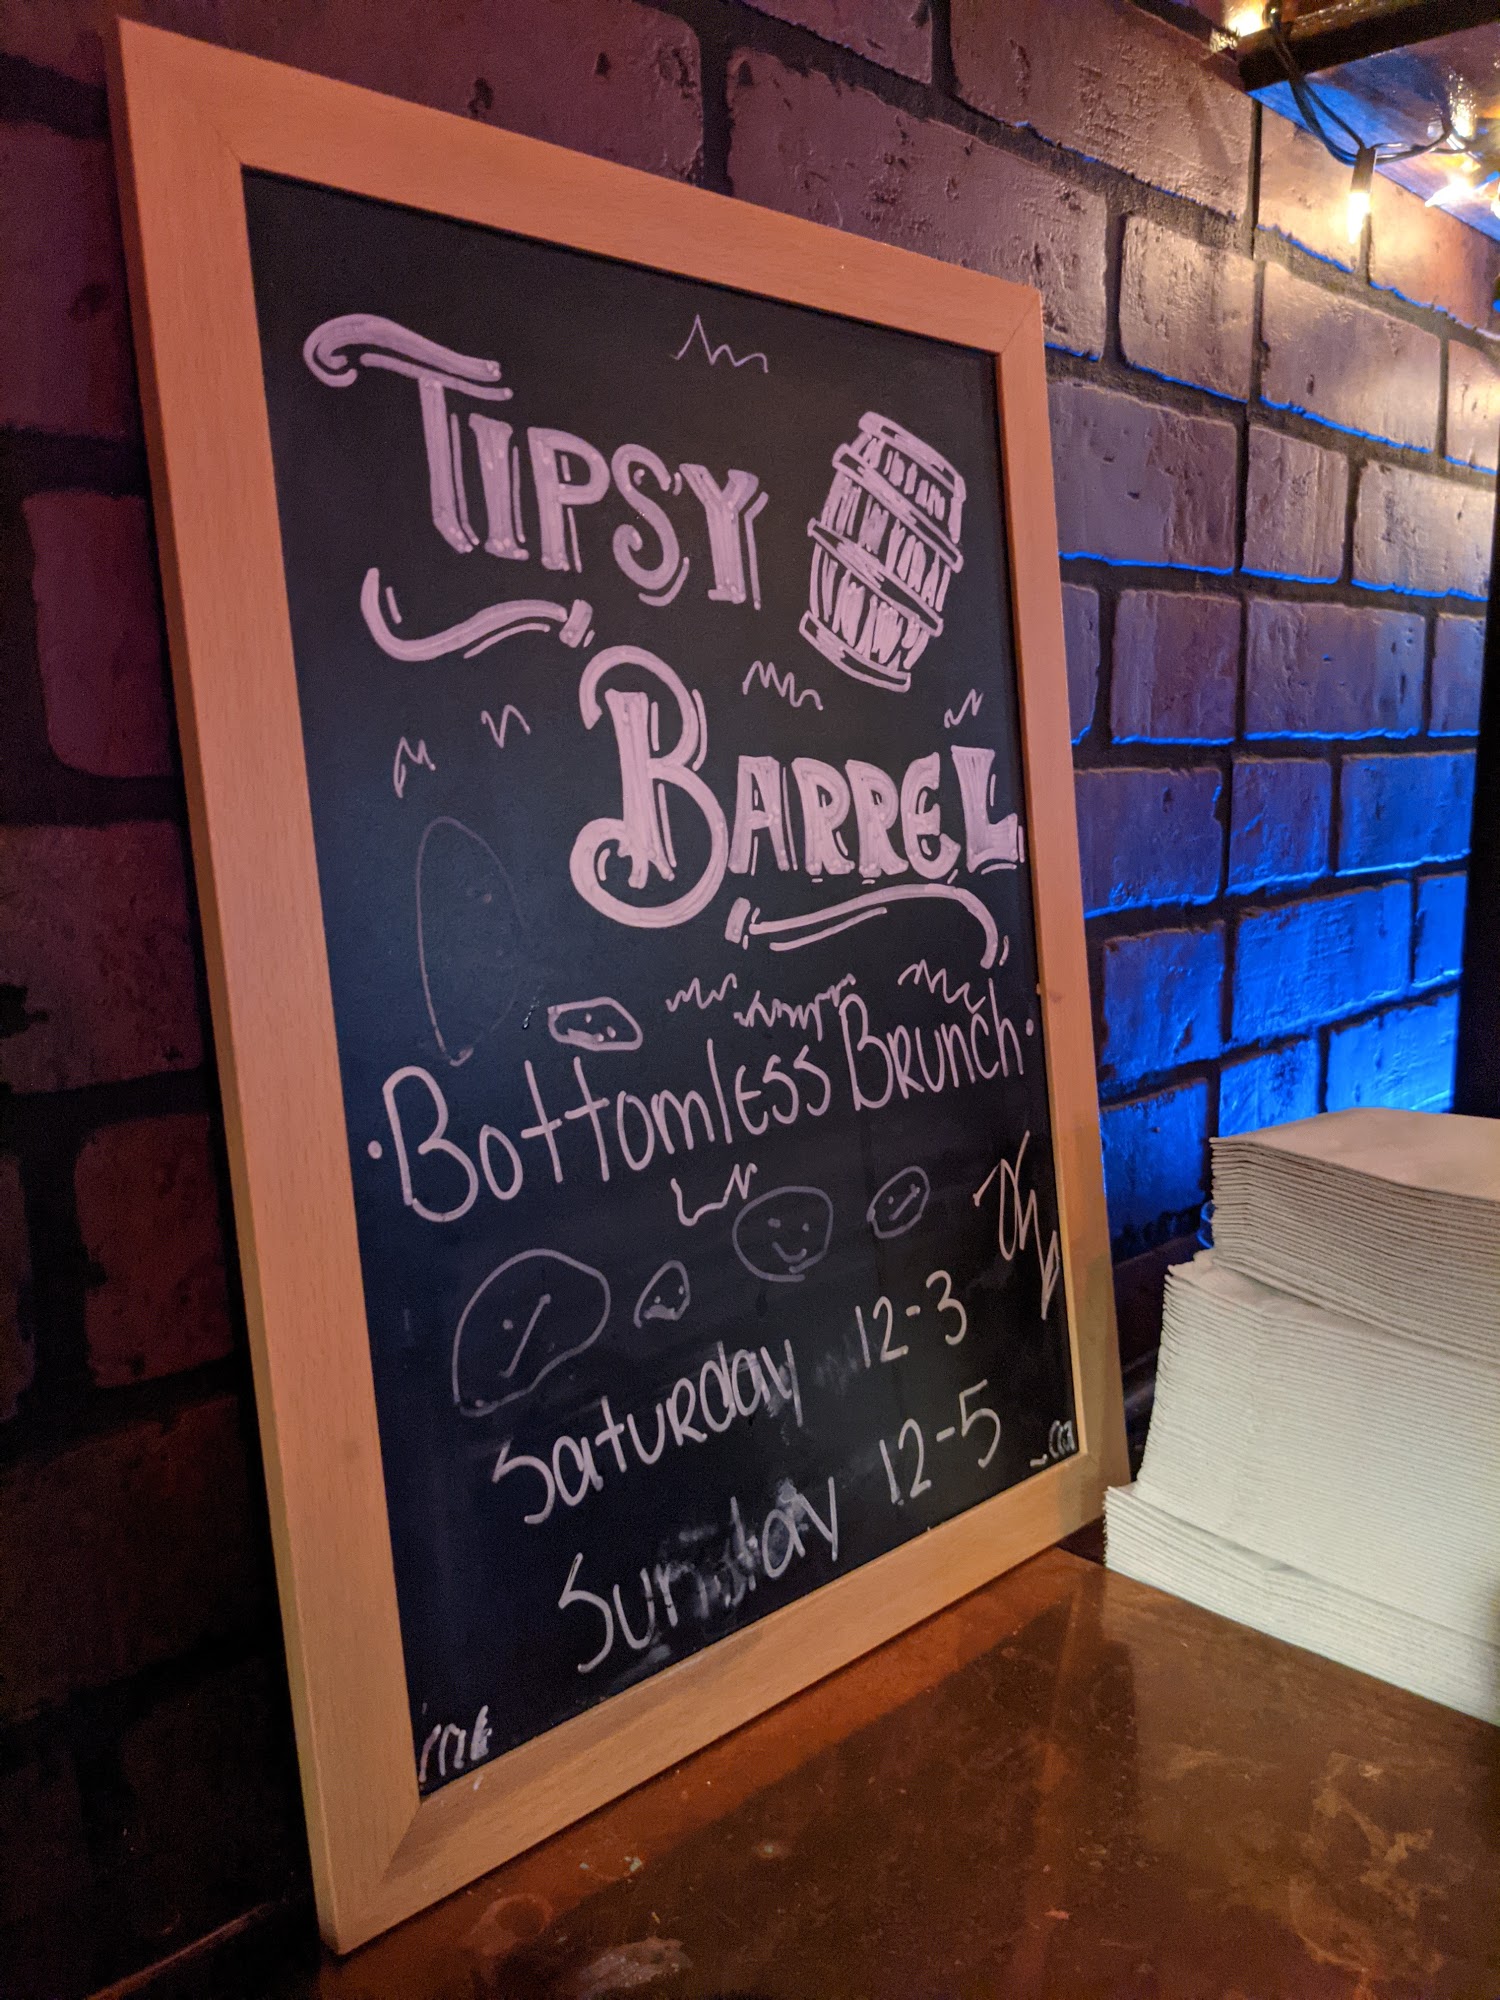 TIPSY
BARREL
• BOTTOMLESS BRUNCH •
SATURDAY 12-3
SUNDAY 12-5